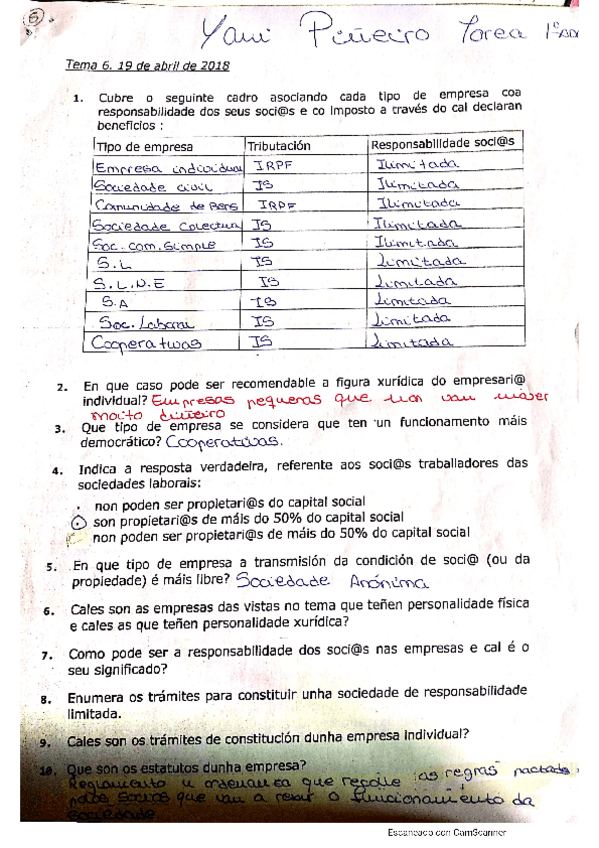 5
Yami Piñeiro Tarea 1º
Tema 6. 19 de abril de 2018
1. Cubre o seguinte cadro asociando cada tipo de empresa coa
responsabilidade dos seus soci@s e co imposto a través do cal declaran
beneficios :
Tipo de empresa Tributación Responsabilidade soci@s
Empresa individual IRPF Ilimitada
Sociedade civil IS Ilimitada
Comunidade de Bens IRPF Ilimitada
Sociedade Colectiva IS Ilimitada
Soc. com. simple IS Ilimitada
S.L IS Limitada
S.L.N.E IS Limitada
S.A IS Limitada
Soc. Laboral IS Limitada
Cooperativas IS Limitada
2. En que caso pode ser recomendable a figura xurídica do empresari@
individual? Empresas pequenas que non van mover
moito diñeiro
3. Que tipo de empresa se considera que ten un funcionamento máis
democrático? Cooperativas.
4. Indica a resposta verdadeira, referente aos soci@s traballadores das
sociedades laborais:
non poden ser propietari@s do capital social
son propietari@s de máis do 50% do capital social
non poden ser propietari@s de máis do 50% do capital social
5. En que tipo de empresa a transmisión da condición de soci@ (ou da
propiedade) é máis libre? Sociedade Anónima
6. Cales son as empresas das vistas no tema que teñen personalidade física
e cales as que teñen personalidade xurídica?
7. Como pode ser a responsabilidade dos soci@s nas empresas e cal é o
seu significado?
8. Enumera os trámites para constituir unha sociedade de responsabilidade
limitada.
9. Cales son os trámites de constitución dunha empresa individual?
10. Que son os estatutos dunha empresa?
Reglamento u ordenanza que recolle as regras pactadas
polos socios que van a rexir o funcionamento da
sociedade
Escaneado con CamScanner